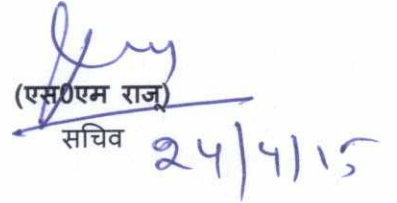 (एस0एम राजू)
सचिव
24/4/15